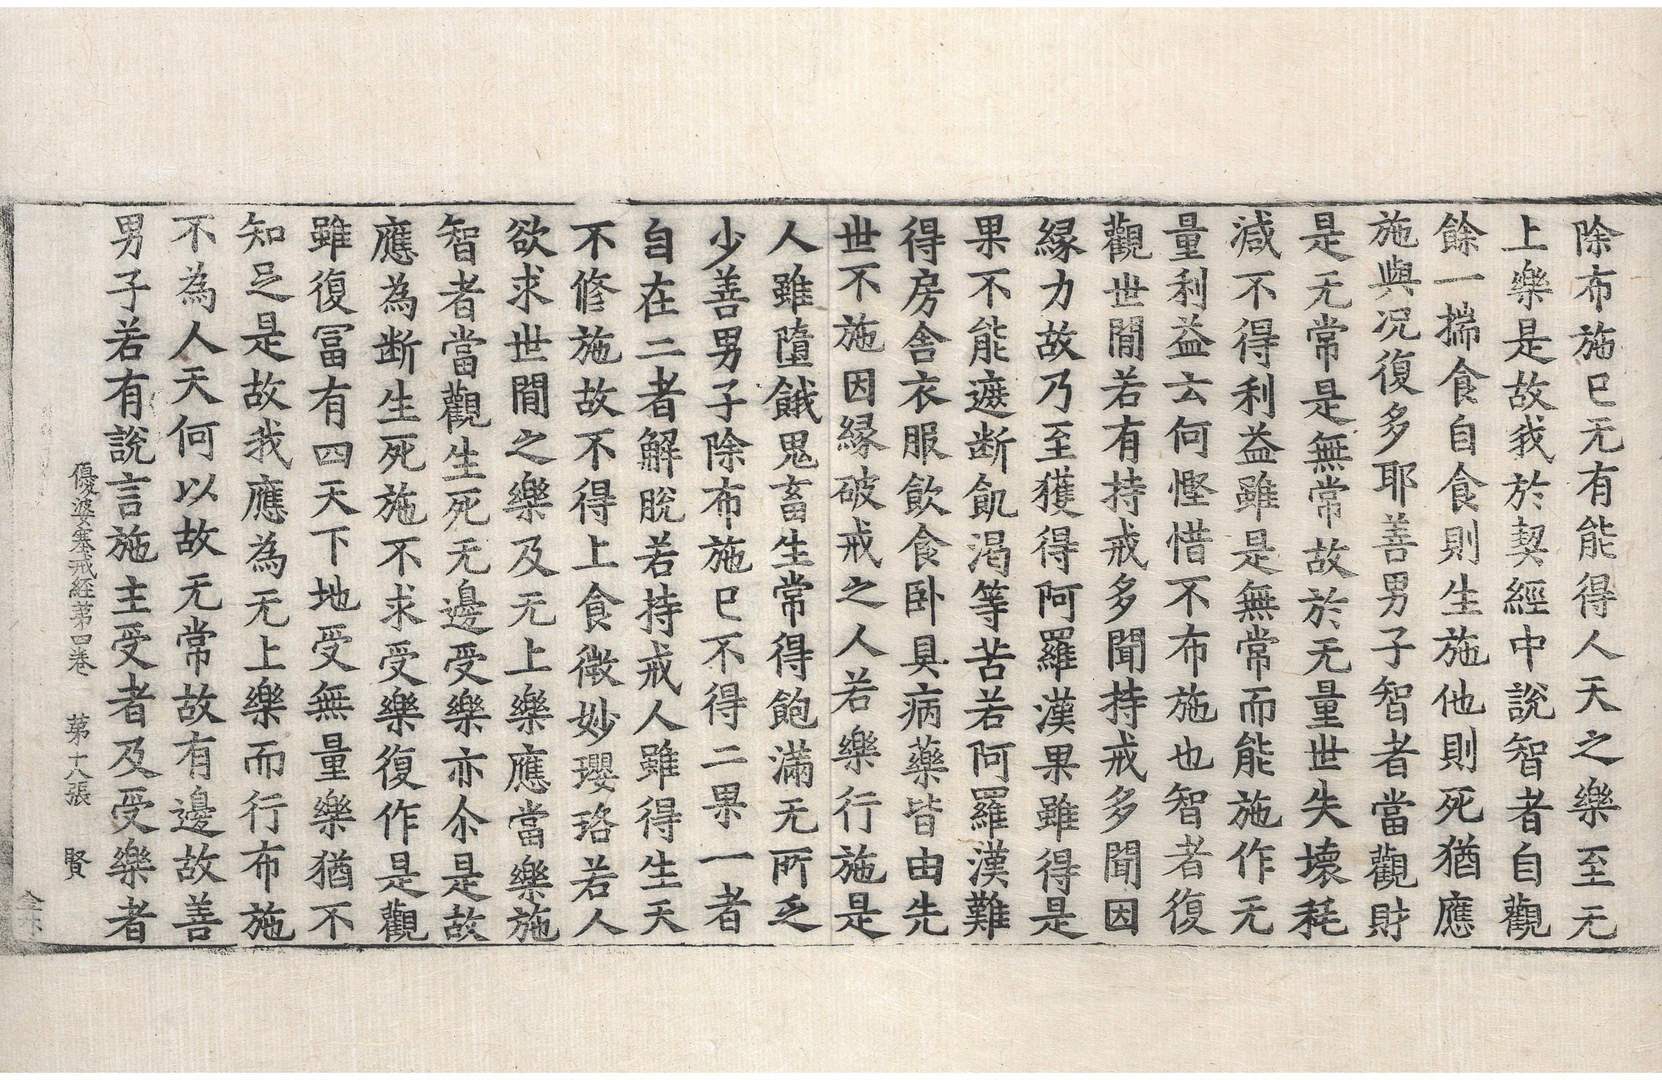 除布施已无有能得人天之樂至无
上樂是故我於契經中說智者自觀
餘一揣食自食則生施他則死猶應
施與况復多耶善男子智者當觀財
是无常是無常故於无量世失壞耗
減不得利益雖是無常而能施作无
量利益云何慳惜不布施也智者復
觀世間若有持戒多聞持戒多聞因
緣力故乃至獲得阿羅漢果雖得是
果不能遮断飢渴等苦若阿羅漢難
得房舍衣服飲食卧具病藥皆由先
世不施因緣破戒之人若樂行施是
人雖墮餓鬼畜生常得飽滿无所乏
少善男子除布施已不得二果一者
自在二者解脫若持戒人雖得生天
不修施故不得上食微妙瓔珞若人
欲求世間之樂及无上樂應當樂施
智者當觀生死无邊受樂亦尒是故
應為断生死施不求受樂復作是觀
雖復冨有四天下地受無量樂猶不
知足是故我應為无上樂而行布施
不為人天何以故无常故有邊故善
男子若有說言施主受者及受樂者
優婆塞戒經第四卷 第十八張 賢